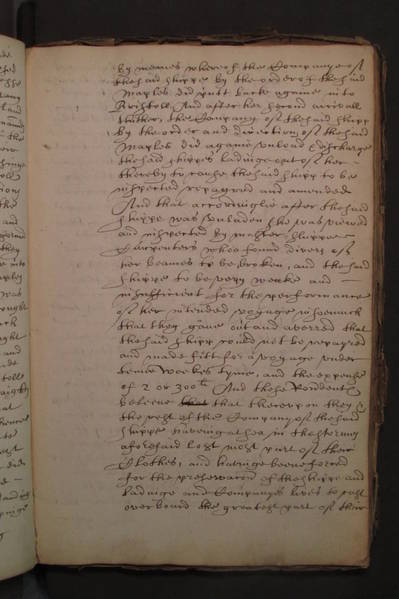 by meanes whereof the Company of
the said shippe by the order of the said
Maples did putt back againe into
Bristoll, And after her second arrivall
thither, the Company of the said shipp
by the order and direction of the said
Maples did againe unload & discharge
the said shipps ladeinge out of her
thereby to cause the said shipp to be
inspected repayred and amended
And that accordinglie after the said
shippe was unladen she was viewed
and inspected by master shippe
Carpenters whoe found divers of
her beames to be broken, and the said
shippe to be very weake and
insufficient for the performance
of her intended voyage insomuch
that they gave out and averred that
the said shipp could not be repayred
and made fitt for a voyage under
weekes tyme, and the expence
of 2 or 300li And these Rendents
beleeve that thereupon they &
the rest of the Company of the said
shippe haveinge in the stormy
aforesaid lost most part of their
Clothes, and haveinge beene forced
for the preservacon of the shippe and
ladeinge and Companys lives to cast
overboard the greatest part of their